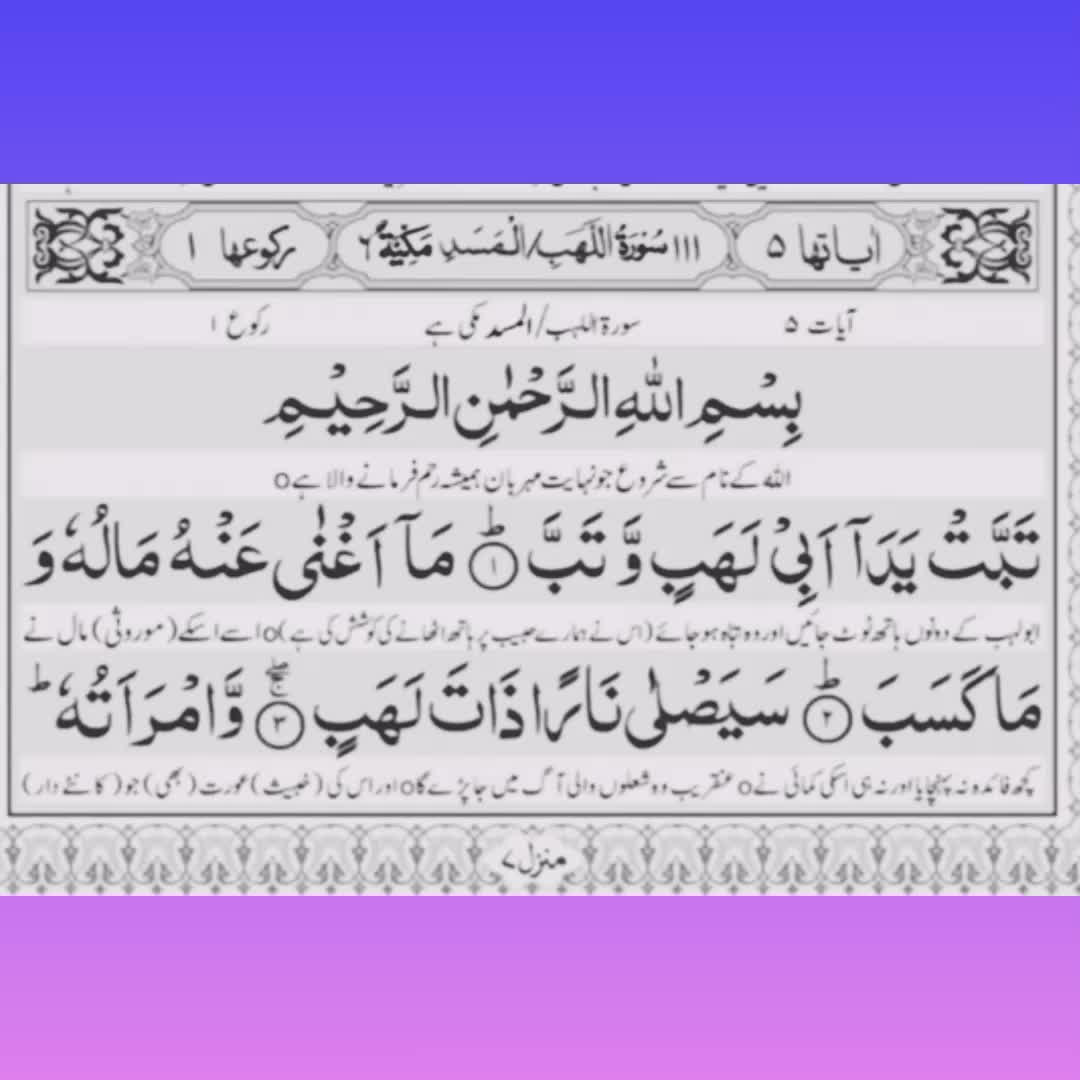 اٰیاتها ۵ ۱۱۱ سُوْرَةُ اللَّهَبِ/الْمَسَدِ مَكِّيَّةٌ ۶ رکوعها ۱
آیات ۵ سورۃ اللہب/المسد مکی ہے رکوع ۱
بِسْمِ اللّٰهِ الرَّحْمٰنِ الرَّحِيْمِ
اللہ کے نام سے شروع جو نہایت مہربان ہمیشہ رحم فرمانے والا ہے o
تَبَّتْ يَدَاۤ اَبِيْ لَهَبٍ وَّ تَبَّ ؕ۝۱ مَاۤ اَغْنٰى عَنْهُ مَالُهٗ وَ
ابولہب کے دونوں ہاتھ ٹوٹ جائیں اور وہ تباہ ہو جائے (اس نے ہمارے حبیب پر ہاتھ اٹھانے کی کوشش کی ہے) o اسے اسکے (موروثی) مال نے
مَا كَسَبَ ؕ۝۲ سَيَصْلٰى نَارًا ذَاتَ لَهَبٍ ۚۖ۝۳ وَّ امْرَاَتُهٗ ؕ
کچھ فائدہ نہ پہنچایا اور نہ ہی اسکی کمائی نے o عنقریب وہ شعلوں والی آگ میں جا پڑے گا o اور اس کی (خبیث) عورت (بھی) جو (کانٹے دار)
منزل ۷